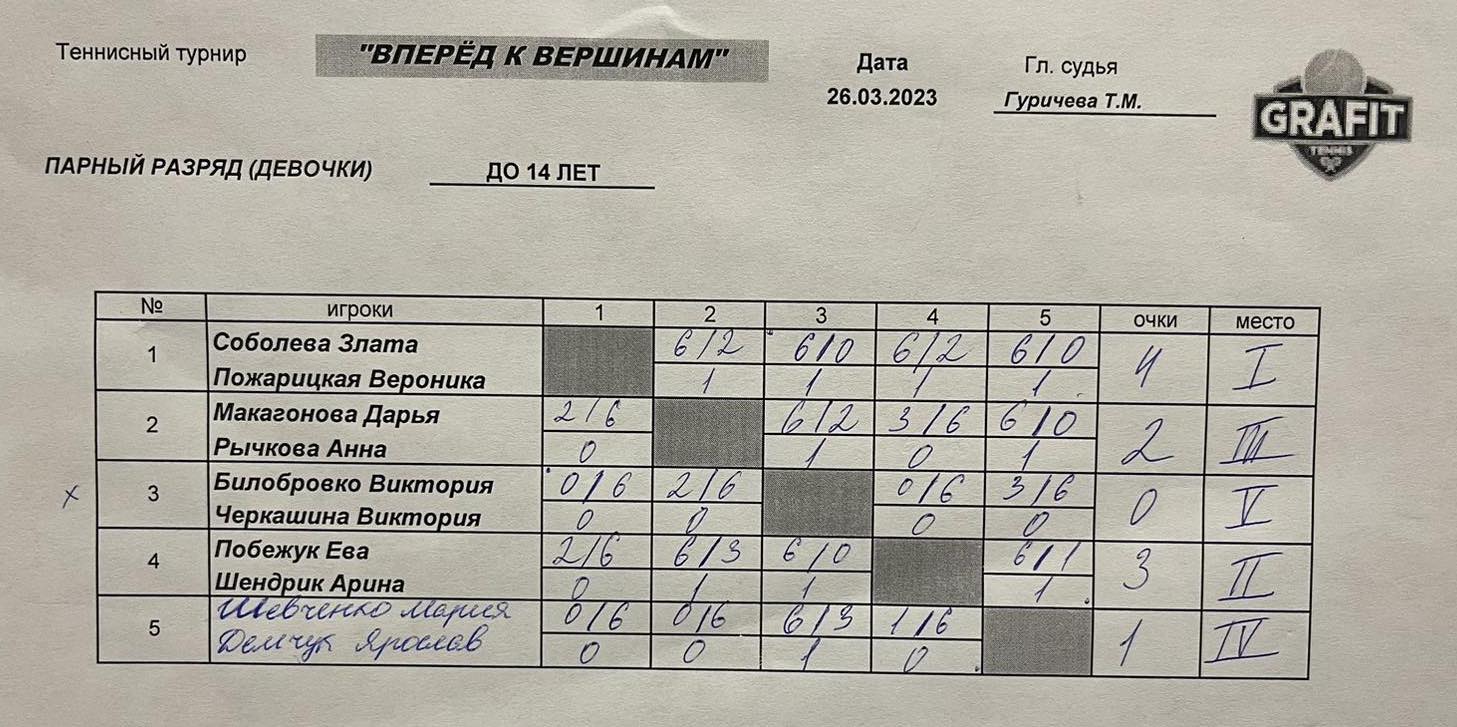 Теннисный турнир "ВПЕРЁД К ВЕРШИНАМ" Дата Гл. судья
26.03.2023 Гуричева Т.М.
GRAFIT
TENNIS
ПАРНЫЙ РАЗРЯД (ДЕВОЧКИ) ДО 14 ЛЕТ
№ игроки 1 2 3 4 5 очки место
1 Соболева Злата 6/2 6/0 6/2 6/0 4 I
Пожарицкая Вероника 1 1 1 1
2 Макагонова Дарья 2/6 6/2 3/6 6/0 2 III
Рычкова Анна 0 1 0 1
х 3 Билобровко Виктория 0/6 2/6 0/6 3/6 0 V
Черкашина Виктория 0 0 0 0
4 Побежук Ева 2/6 6/3 6/0 6/1 3 II
Шендрик Арина 0 1 1 1
5 Шевченко Мария 0/6 0/6 6/3 1/6 1 IV
Демчук Ярослав 0 0 1 0